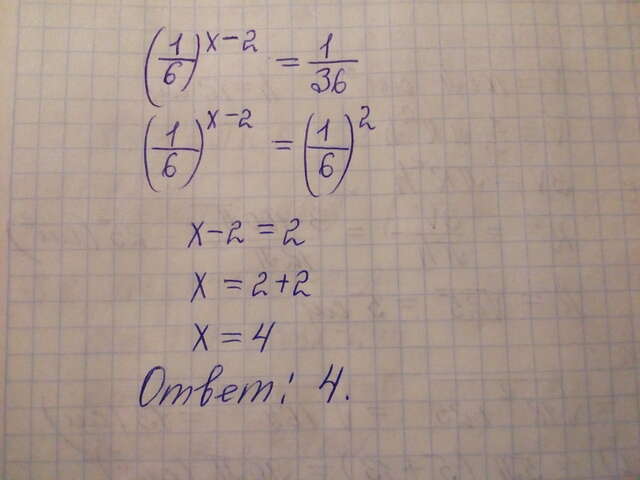 (1/6)^(x-2) = 1/36
(1/6)^(x-2) = (1/6)^2
x-2 = 2
x = 2+2
x = 4
Ответ: 4.